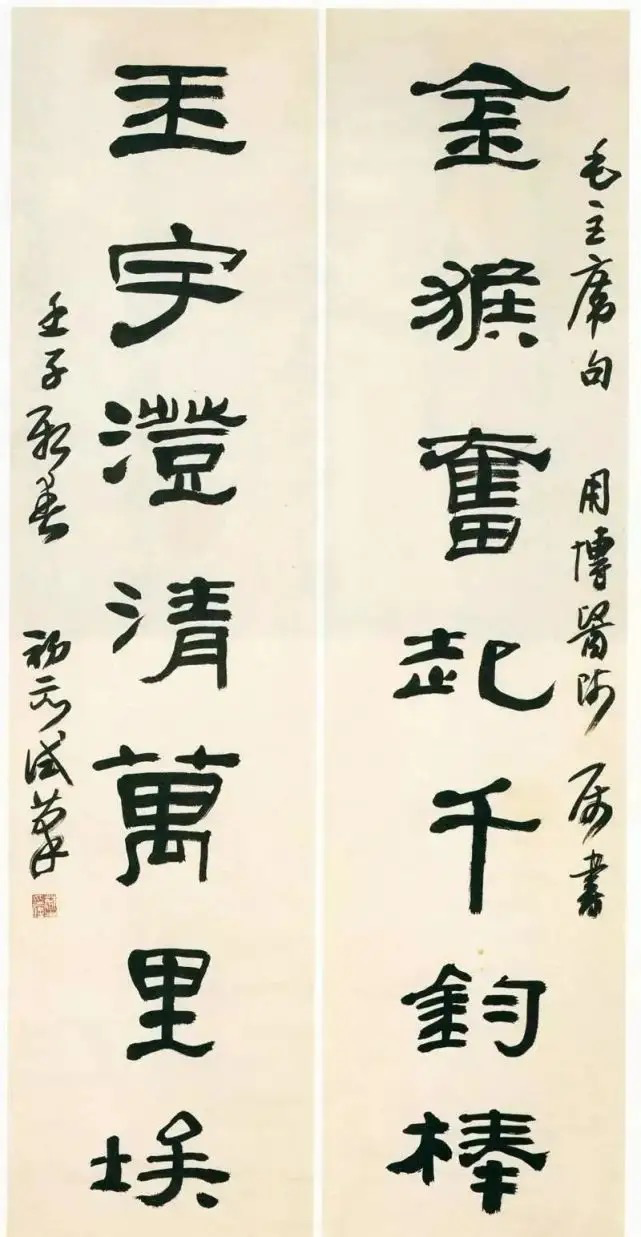 毛主席句 用博醫師 属書
金猴奮起千鈞棒
玉宇澄清萬里埃
壬子新春 初試筆